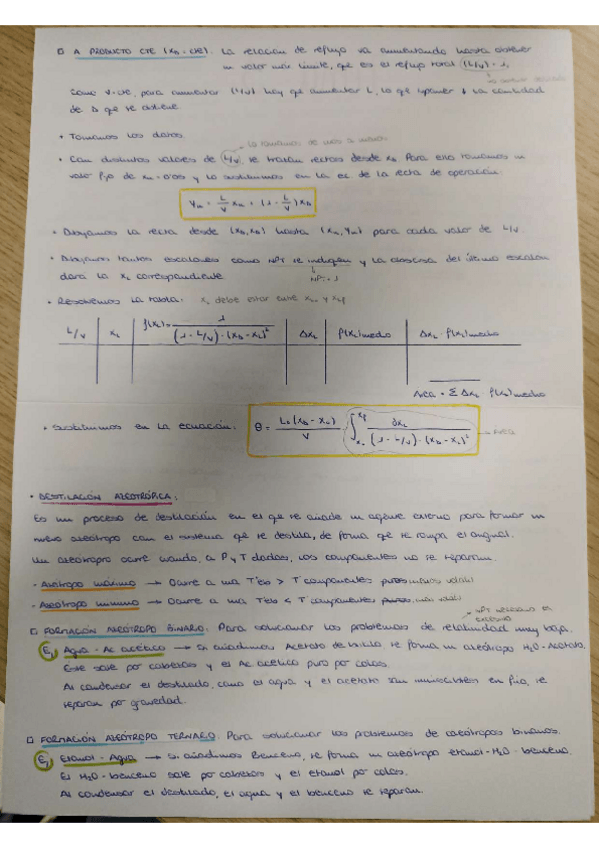 □ A PRODUCTO CTE (x_D = cte). La relación de reflujo va aumentando hasta obtener
un valor max límite, que es el reflujo total (L/V) = 1,
Como V = cte, para aumentar (L/V) hay que aumentar L, lo que supone ↓ la cantidad
de Δ que se obtiene
• Tomamos los datos.
• Con distintos valores de L/V se trazan rectas desde x_D. Para ello tomamos un
valor fijo de x_m = 0'05 y lo sustituimos en la ec de la recta de operación:
y_m = L/V x_m + (1 - L/V) x_D
• Dibujamos la recta desde (x_D, x_D) hasta (x_m, y_m) para cada valor de L/V
• Dibujamos tantos escalones como NPT se indiquen y la abscisa del último escalón
dará la x_L correspondiente. NPT + 1
• Resolvemos la tabla: x_L debe estar entre x_Lo y x_Lf
L/V | x_L | f(x_L) = 1 / ((1 - L/V) · (x_D - x_L)²) | Δx_L | f(x_L) medio | Δx_L · f(x_L) medio
Área = Σ Δx_L · f(x_L) medio
• Sustituimos en la ecuación: θ = L_o (x_D - x_o) / V · ∫ dx_L / ((1 - L/V) · (x_D - x_L)²) → Área
• DESTILACIÓN AZEOTRÓPICA:
Es un proceso de destilación en el que se añade un agente externo para formar un
nuevo azeótropo con el sistema que se destila, de forma que se rompa el original.
Un azeótropo ocurre cuando, a P y T dadas, los componentes no se separan.
- Azeótropo máximo → Ocurre a una Teb > T componentes puros menos volátil
- Azeótropo mínimo → Ocurre a una Teb < T componentes puros. más volátil
□ FORMACIÓN AZEÓTROPO BINARIO. Para solucionar los problemas de relatividad muy baja.
Ej Agua - Ac acético → Si añadimos Acetato de butilo, se forma un azeótropo H₂O - Acetato.
Este sale por cabezas y el Ac acético puro por colas.
Al condensar el destilado, como el agua y el acetato son inmiscibles en frío, se
separan por gravedad.
□ FORMACIÓN AZEÓTROPO TERNARIO. Para solucionar los problemas de azeótropos binarios.
Ej Etanol - Agua → Si añadimos Benceno, se forma un azeótropo etanol - H₂O - benceno.
El H₂O - benceno sale por cabezas y el etanol por colas.
Al condensar el destilado, el agua y el benceno se separan.